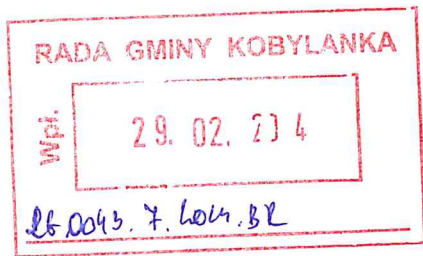 RADA GMINY KOBYLANKA
Wpł.
29. 02. 2024
RG.0043.7.2024.BR